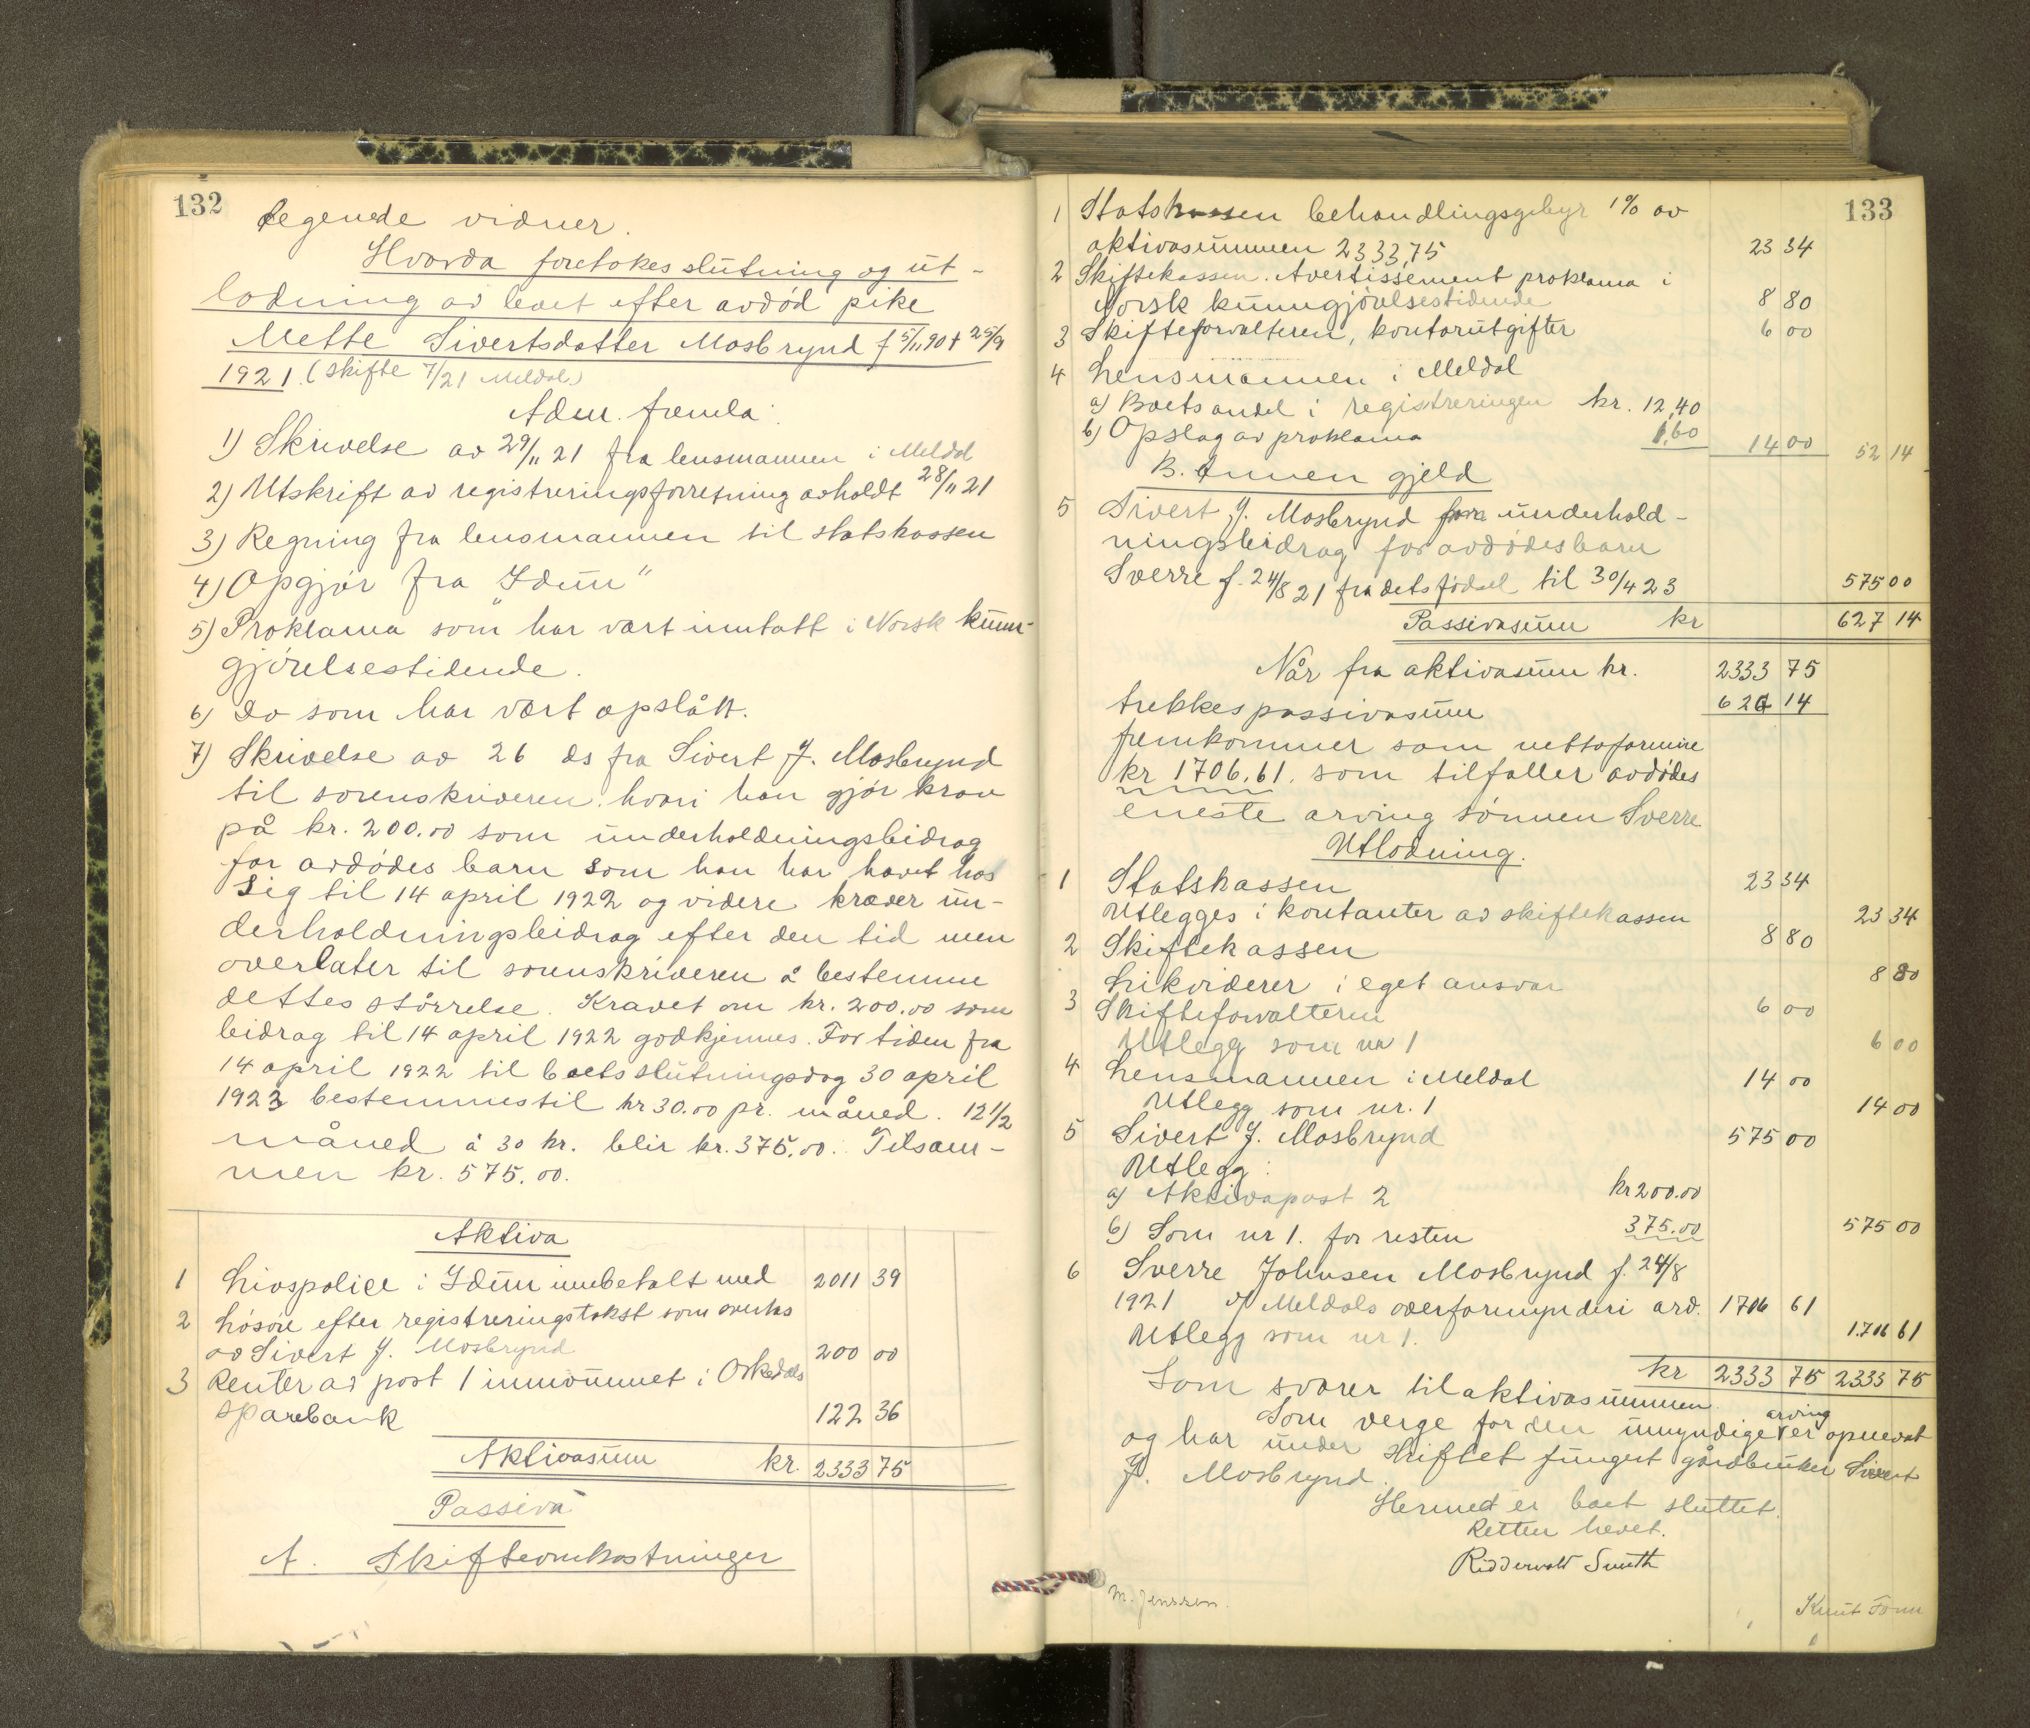 132
tegnede vidner.
Hvorda foretokes slutning og ut-
lodning av boet efter avdød pike
Mette Sivertsdatter Mosbrynd f 5/11 90 + 25/9
1921. (skifte 7/21 Meldal)
Adm. fremla:
1) Skrivelse av 29/11 21 fra lensmannen i Meldal
2) Utskrift av registreringsforretning avholdt 28/11 21
3) Regning fra lensmannen til statskassen
4) Opgjør fra "Idun"
5) Proklama som har vært inntatt i Norsk kunn-
gjørelsestidende.
6) Do som har vært opslått.
7) Skrivelse av 26 ds fra Sivert J. Mosbrynd
til sorenskriveren hvori han gjør krav
på kr. 200.00 som underholdningsbidrag
for avdødes barn som han har havet hos
sig til 14 april 1922 og videre kræver un-
derholdningsbidrag efter den tid men
overlater til sorenskriveren å bestemme
dettes størrelse. Kravet om kr. 200.00 som
bidrag til 14 april 1922 godkjennes. For tiden fra
14 april 1922 til boets slutningsdag 30 april
1923 bestemmes til kr 30.00 pr. måned. 12 1/2
måned à 30 kr. blir kr. 375.00. Tilsam-
men kr. 575.00.
Aktiva
1 Livspolice i Idun innbetalt med 2011 39
2 Løsøre efter registreringstakst som overtas
av Sivert J. Mosbrynd 200 00
3 Renter av post 1 innvunnet i Orkedals
sparebank 122 36
Aktivasum kr. 2333 75
Passiva
A. Skifteomkostninger
133
1 Statskassen behandlingsgebyr 1% av
aktivasummen 2333,75 23 34
2 Skiftekassen. Avertissement proklama i
Norsk kunngjørelsestidende 8 80
3 Skifteforvalteren, kontorutgifter 6 00
4 Lensmannen i Meldal
a) Boets andel i registreringen kr. 12,40
b) Opslag av proklama 1,60 14 00 52 14
B. Annen gjeld
5 Sivert J. Mosbrynd underhold-
ningsbidrag for avdødes barn
Sverre f. 24/8 21 fra dets fødsel til 30/4 23 575 00
Passivasum kr 627 14
Når fra aktivasum kr. 2333 75
trekkes passivasum 627 14
fremkommer som nettoformue
kr 1706.61. som tilfaller avdødes
eneste arving sønnen Sverre
Utlodning.
1 Statskassen 23 34
Utlegges i kontanter av skiftekassen 23 34
2 Skiftekassen 8 80
Likviderer i eget ansvar 8 80
3 Skifteforvalteren 6 00
Utlegg som nr 1 6 00
4 Lensmannen i Meldal 14 00
Utlegg som nr. 1 14 00
5 Sivert J. Mosbrynd 575 00
Utlegg:
a) Aktivapost 2 kr 200.00
b) Som nr 1. for resten 375.00 575 00
6 Sverre Johnsen Mosbrynd f. 24/8
1921 v/ Meldals overformynderi arv. 1706 61
Utlegg som nr 1. 1706 61
kr 2333 75 2333 75
Som svarer til aktivasummen.
Som verge for den umyndige arving er opnevnt
og har under skiftet fungert gårdbruker Sivert
J. Mosbrynd.
Hermed er boet sluttet.
Retten hevet.
Riddervold Smith
M. Jenssen.
Knut Fonn